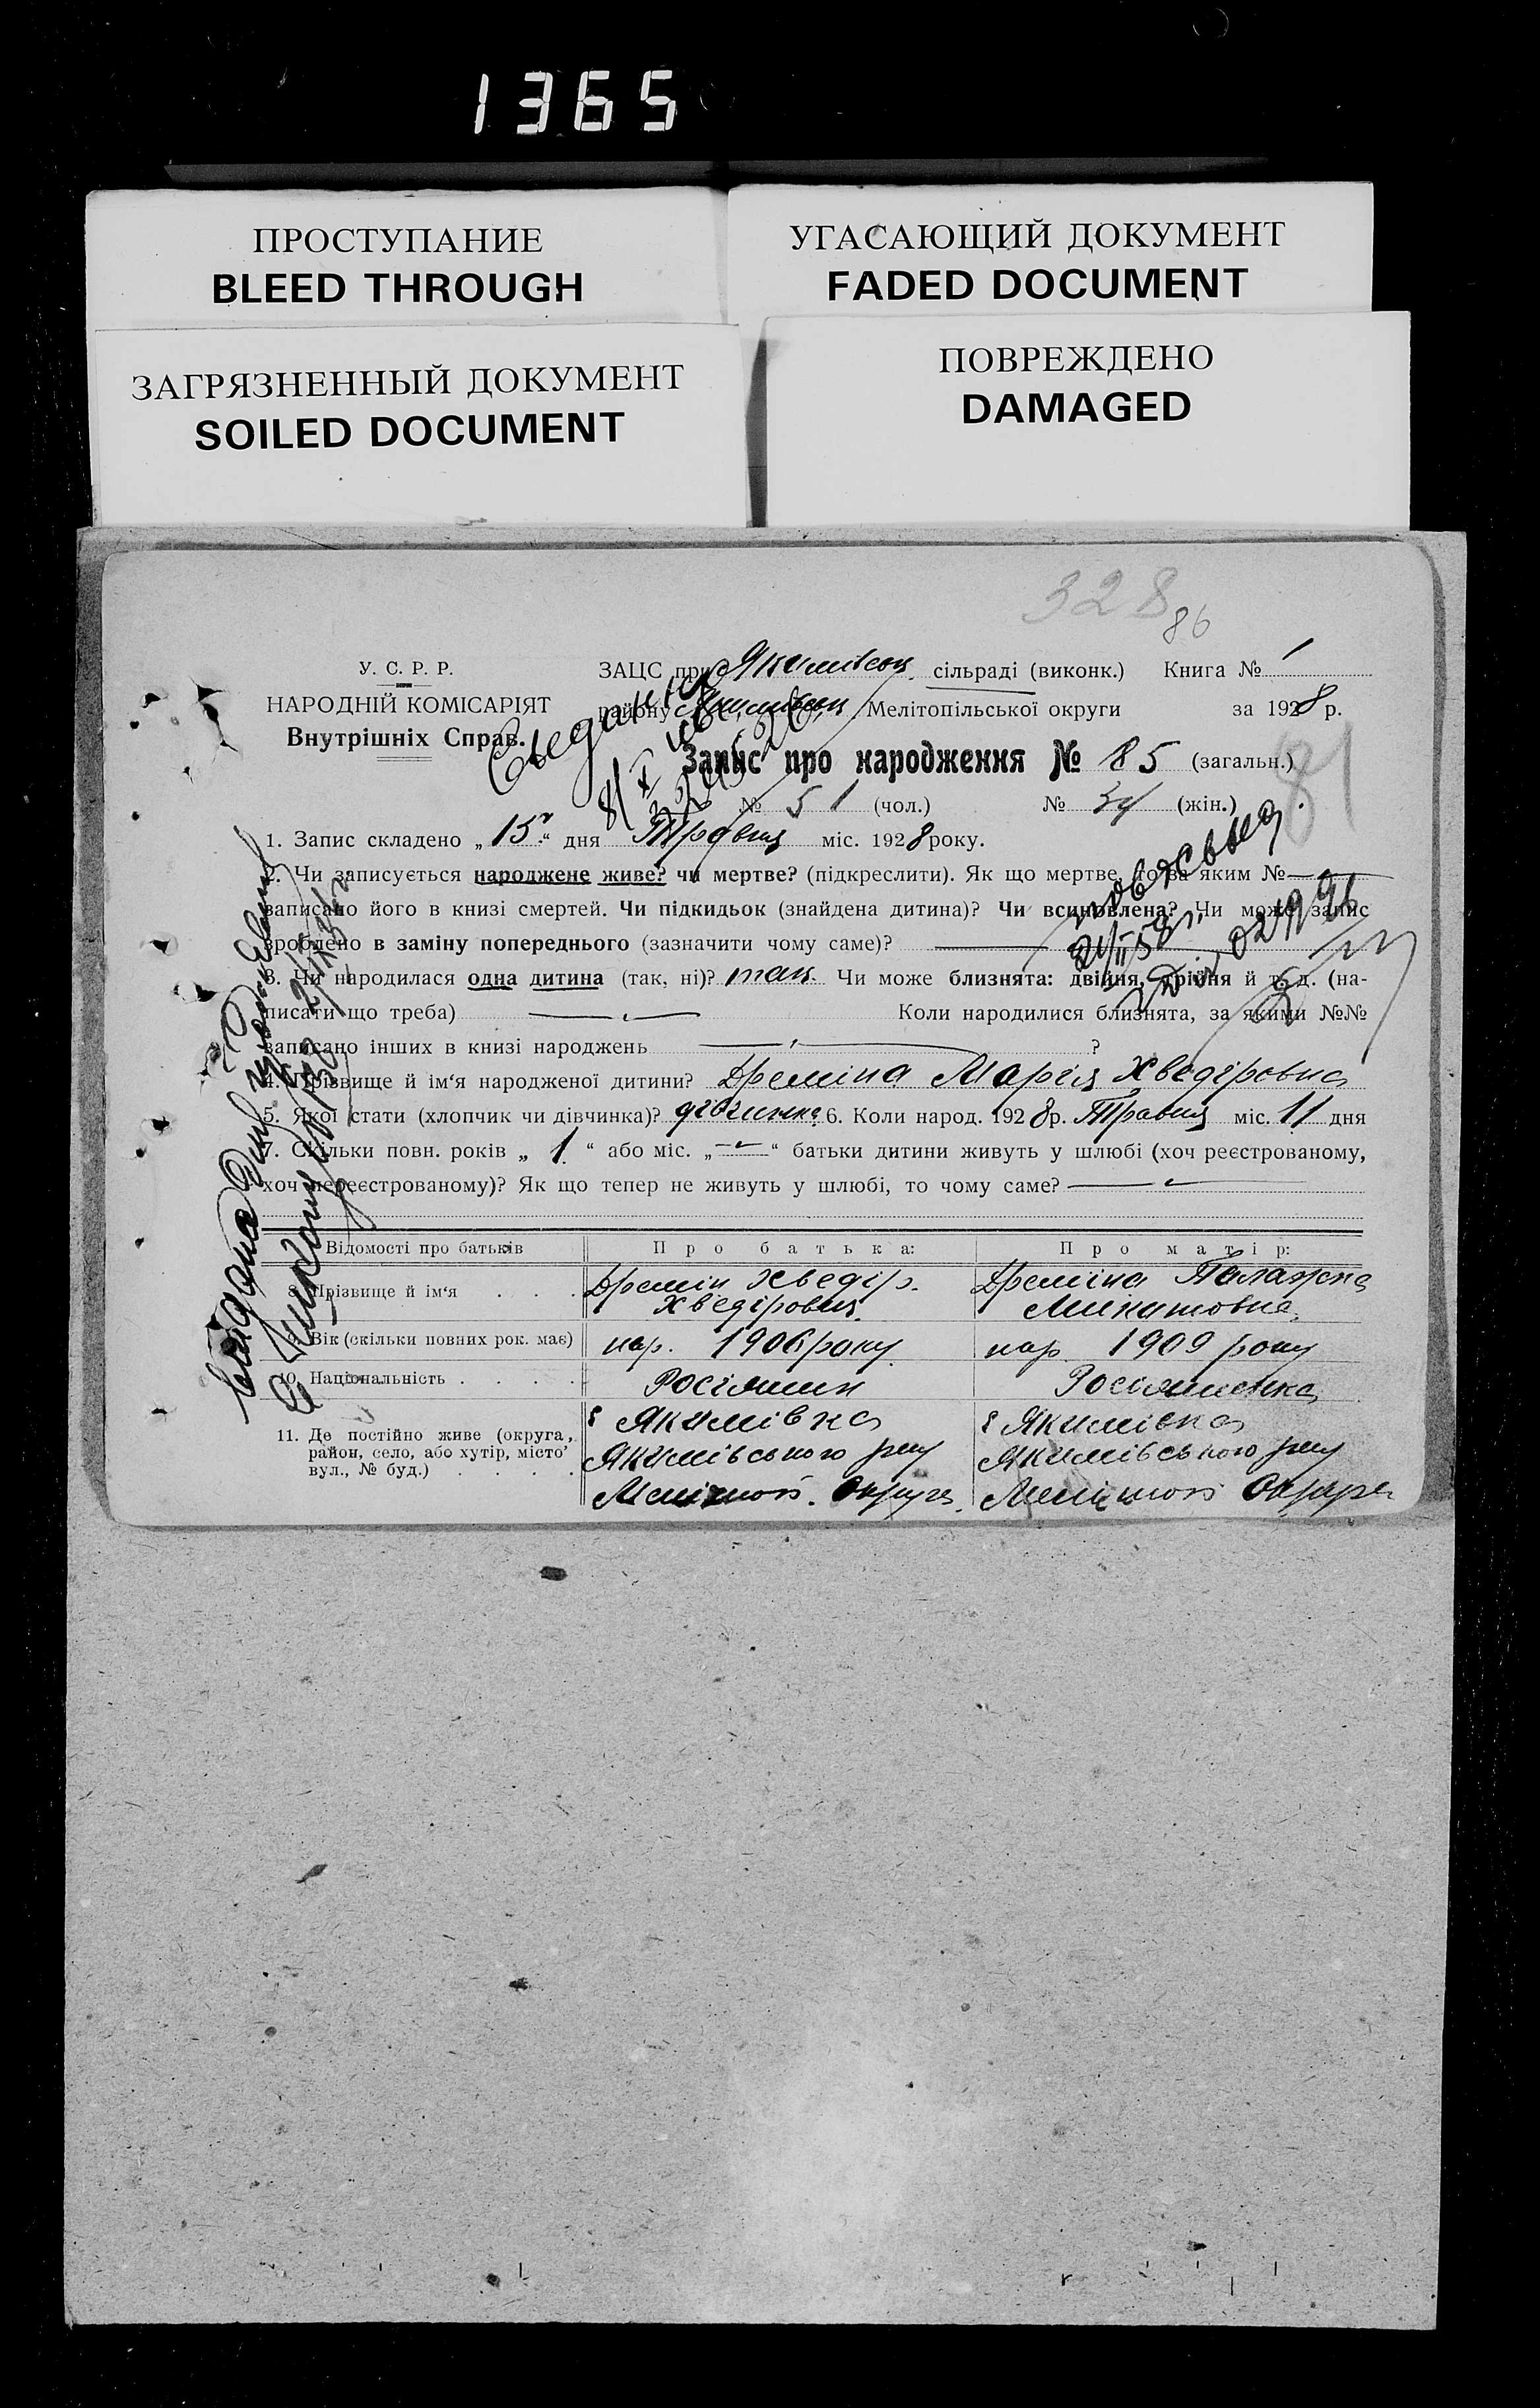 1365
ПРОСТУПАНИЕ
BLEED THROUGH
УГАСАЮЩИЙ ДОКУМЕНТ
FADED DOCUMENT
ЗАГРЯЗНЕННЫЙ ДОКУМЕНТ
SOILED DOCUMENT
ПОВРЕЖДЕНО
DAMAGED
328
86
У. С. Р. Р.
НАРОДНІЙ КОМІСАРІЯТ
Внутрішніх Справ.
ЗАЦС при Якимівськ. сільраді (виконк.) Книга № 1
району Якимівськ Мелітопільської округи за 1928 р.
Запис про народження № 85 (загальн.)
№ 51 (чол.) № 34 (жін.)
81
1. Запис складено „15“ дня Травня міс. 1928 року.
2. Чи записується народжене живе? чи мертве? (підкреслити). Як що мертве, то за яким №
записано його в книзі смертей. Чи підкидьок (знайдена дитина)? Чи всиновлена? Чи може запис
зроблено в заміну попереднього (зазначити чому саме)?
3. Чи народилася одна дитина (так, ні)? так. Чи може близнята: двійня, трійня й т. д. (на-
писати що треба) Коли народилися близнята, за якими №№
записано інших в книзі народжень ?
4. Прізвище й ім‘я народженої дитини? Дреміна Марія Хведіровна
5. Якої стати (хлопчик чи дівчинка)? дівчинка 6. Коли народ. 1928 р. Травня міс. 11 дня
7. Скільки повн. років „ 1 “ або міс. „ — “ батьки дитини живуть у шлюбі (хоч реєстрованому,
хоч нереєстрованому)? Як що тепер не живуть у шлюбі, то чому саме?
Відомості про батьків Про батька: Про матір:
8. Прізвище й ім‘я Дремін Хведір Хведірович Дреміна Палажка
9. Вік (скільки повних рок. має) нар. 1906 року нар 1909 року
10. Національність Росіянин Росіяненка
11. Де постійно живе (округа, район, село, або хутір, місто вул., № буд.)
с Якимівка с Якимівка
Якимівського р-ну Якимівського р-ну
Меліт Округи Меліт Округи